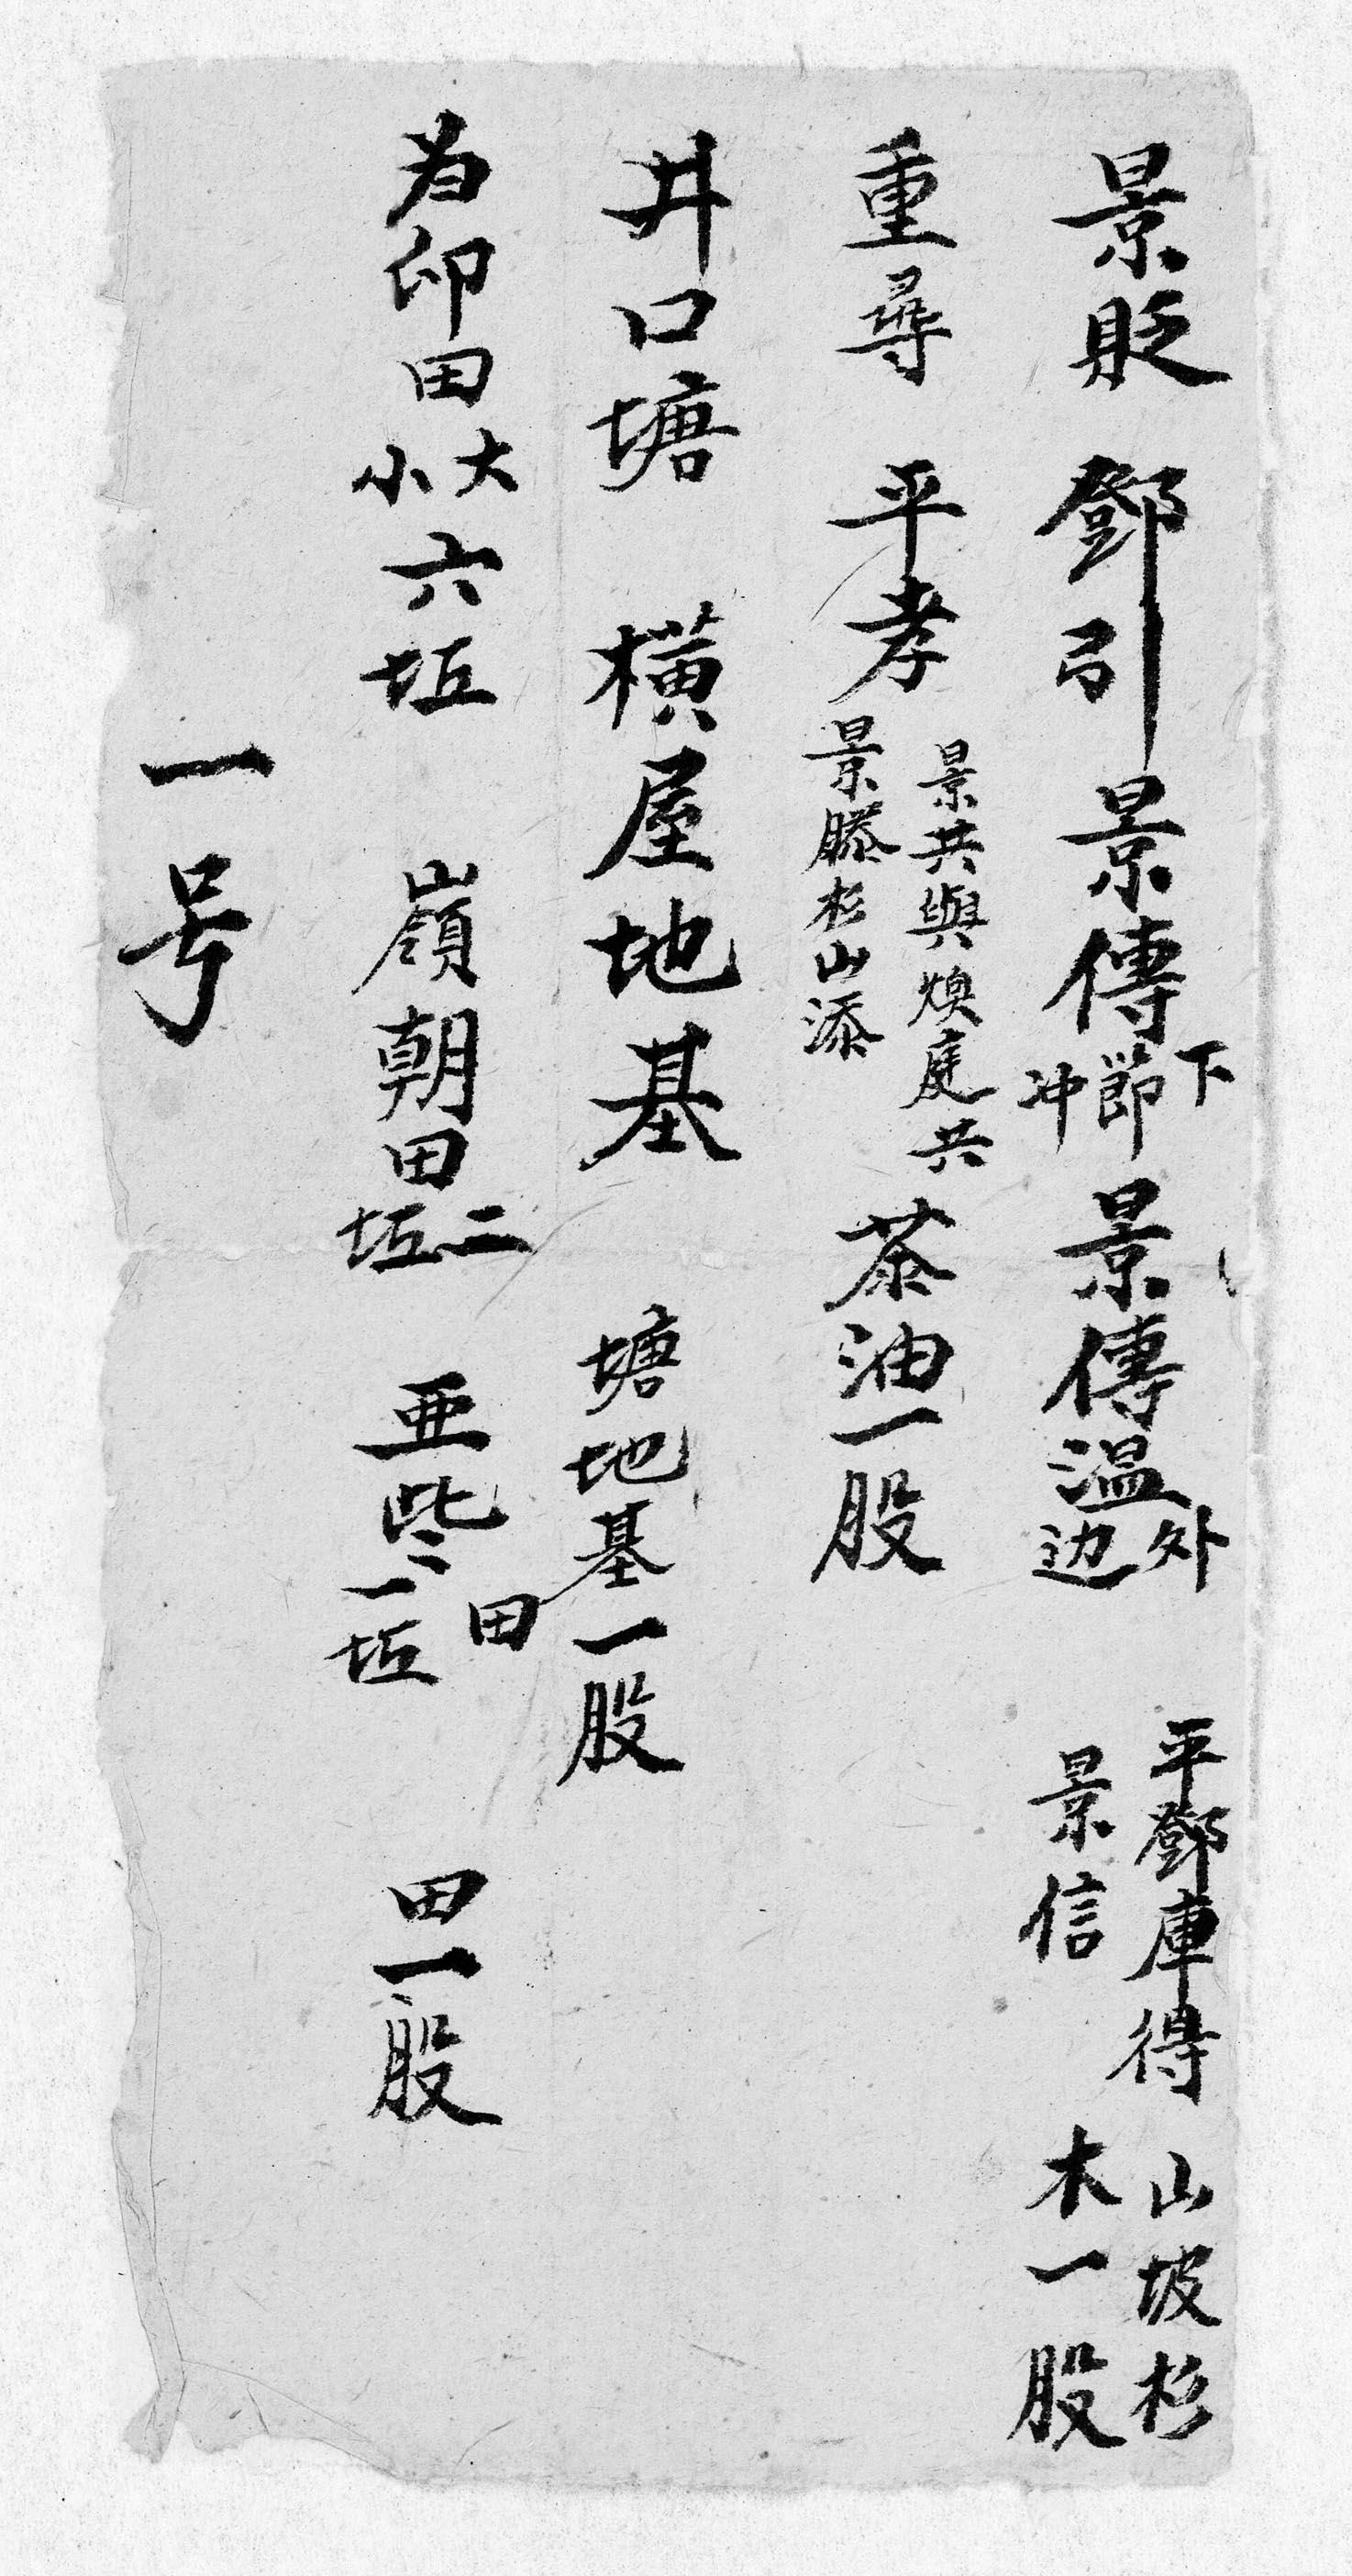 景貶　鄧引　景傳下節冲　景傳溫外边　平鄧庫得景信　山坡杉木一股
重尋　平孝景共與煥庭共景滕杉山添　茶油一股
井口塘　橫屋地基　塘地基一股
为卬田大小六坵　嶺朝田二坵　亜些田一坵　田一股
一号